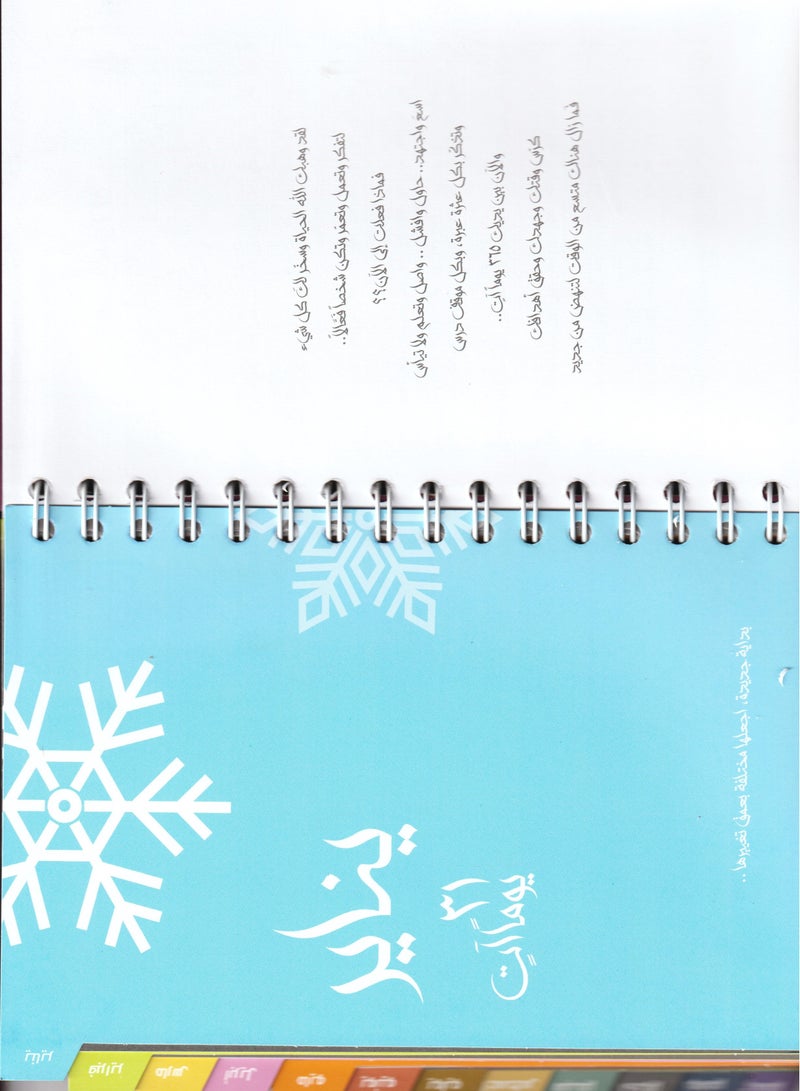 لقد وهبك الله الحياة وسخر لك كل شيء
لتفكر وتعمل وتعمر وتكن شخصاً فعّالاً..
فماذا فعلت إلى الآن؟؟
اسعَ واجتهد.. حاول وافشل.. واصل وتعلم ولا تيأس
وتذكر بكل عثرة عبرة، وبكل موقف درس
والآن بين يديك ٣٦٥ يوماً آتٍ..
كرّس وقتك وجهدك وحقق أهدافك
فما زال هناك متسع من الوقت لتنهض من جديد
يناير
٣١
يوماً آتٍ
بداية جديدة، اجعلها مختلفة بعمق تغييرها..
يناير
فبراير
مارس